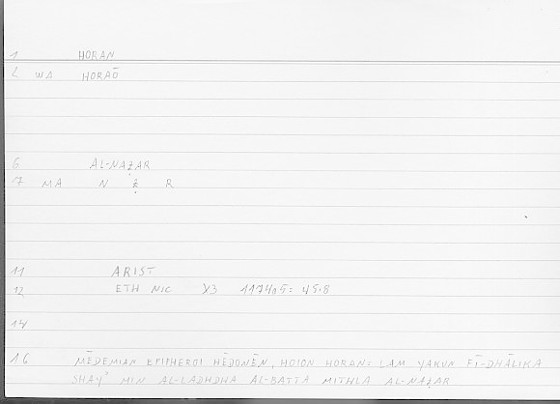 1 HORAN
2 WA HORAŌ
6 AL-NAẒAR
7 MA N Ẓ R
11 ARIST
12 ETH NIC 1174a5 = 45.8
14
16 MĒDEMIAN EPIPHEROI HĒDONĒN, HOION HORAN = LAM YAKUN FĪ-DHĀLIKA
SHAYʾ MIN AL-LADHDHA AL-BATTA MITHLA AL-NAẒAR